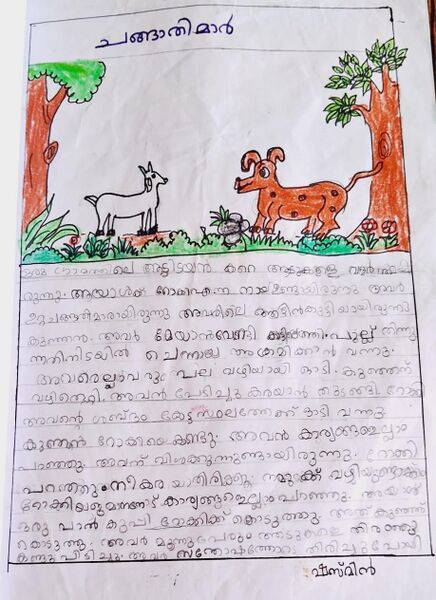 ചങ്ങാതിമാർ
ഒരു ഗ്രാമത്തിലെ ആട്ടിടയൻ കുറെ ആടുകളെ വളർത്തി
രുന്നു. ആയാൾക്ക് റോക്കി എന്ന നായ ഉണ്ടായിരുന്നു അവർ
ചങ്ങാതിമാരായിരുന്നു അവരിലെ ആട്ടിൻകുട്ടിയായിരുന്നു
കുഞ്ഞൻ. അവർ മേയാൻവേണ്ടി പുല്ല് തിന്നു
ന്നതിനിടയിൽ ചെന്നായ അക്രമിക്കാൻ വന്നു.
അവരെല്ലാവരും പല വഴിയായി ഓടി. കുഞ്ഞന്
വഴിതെറ്റി. അവൻ പേടിച്ചു കരയാൻ തുടങ്ങി. റോക്കി
അവന്റെ ശബ്ദം കേട്ടസ്ഥലത്തേക്ക് ഓടി വന്നു.
കുഞ്ഞൻ റോക്കിയെ കണ്ടു. അവൻ കാര്യങ്ങളെല്ലാം
പറഞ്ഞു. അവന് വിശക്കുന്നുണ്ടായിരുന്നു. റോക്കി
പറഞ്ഞു നീ കരയാതിരിക്കൂ. നമുക്ക് വഴിയുണ്ടാക്കാം
റോക്കി കാര്യങ്ങളെല്ലാം പറഞ്ഞു. അയാൾ
ഒരു പാൽ കുപ്പി റോക്കിക്ക് കൊടുത്തു. അത് കുഞ്ഞന്
കൊടുത്തു. അവർ മൂന്നുപേരും ആടുകളെ തിരഞ്ഞു
കണ്ടു പിടിച്ചു. അവർ സന്തോഷത്തോടെ തിരിച്ചുപോയി
ഷസ്മിൻ